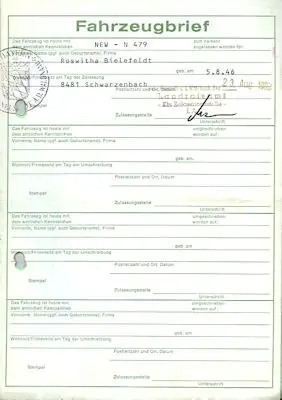 Fahrzeugbrief
Das Fahrzeug ist heute mit
dem amtlichen Kennzeichen NEW - N 479 zum Verkehr
zugelassen worden für
Vorname, Name (ggf. auch Geburtsname), Firma
Roswitha Bielefeldt geb. am 5.8.46
am Tag der Zulassung
8481 Schwarzenbach
Postleitzahl und Ort, Datum
Landratsamt
Zulassungsstelle
Unterschrift
Das Fahrzeug ist heute mit
dem amtlichen Kennzeichen umgeschrieben
worden für
Vorname, Name (ggf. auch Geburtsname), Firma
geb. am
Wohnort/Firmensitz am Tag der Umschreibung
Postleitzahl und Ort, Datum
Stempel
Zulassungsstelle
Unterschrift
Das Fahrzeug ist heute mit
dem amtlichen Kennzeichen umgeschrieben
worden für
Vorname, Name (ggf. auch Geburtsname), Firma
geb. am
Wohnort/Firmensitz am Tag der Umschreibung
Postleitzahl und Ort, Datum
Stempel
Zulassungsstelle
Unterschrift
Das Fahrzeug ist heute mit
dem amtlichen Kennzeichen umgeschrieben
worden für
Vorname, Name (ggf. auch Geburtsname), Firma
geb. am
Wohnort/Firmensitz am Tag der Umschreibung
Postleitzahl und Ort, Datum
Stempel
Zulassungsstelle
Unterschrift